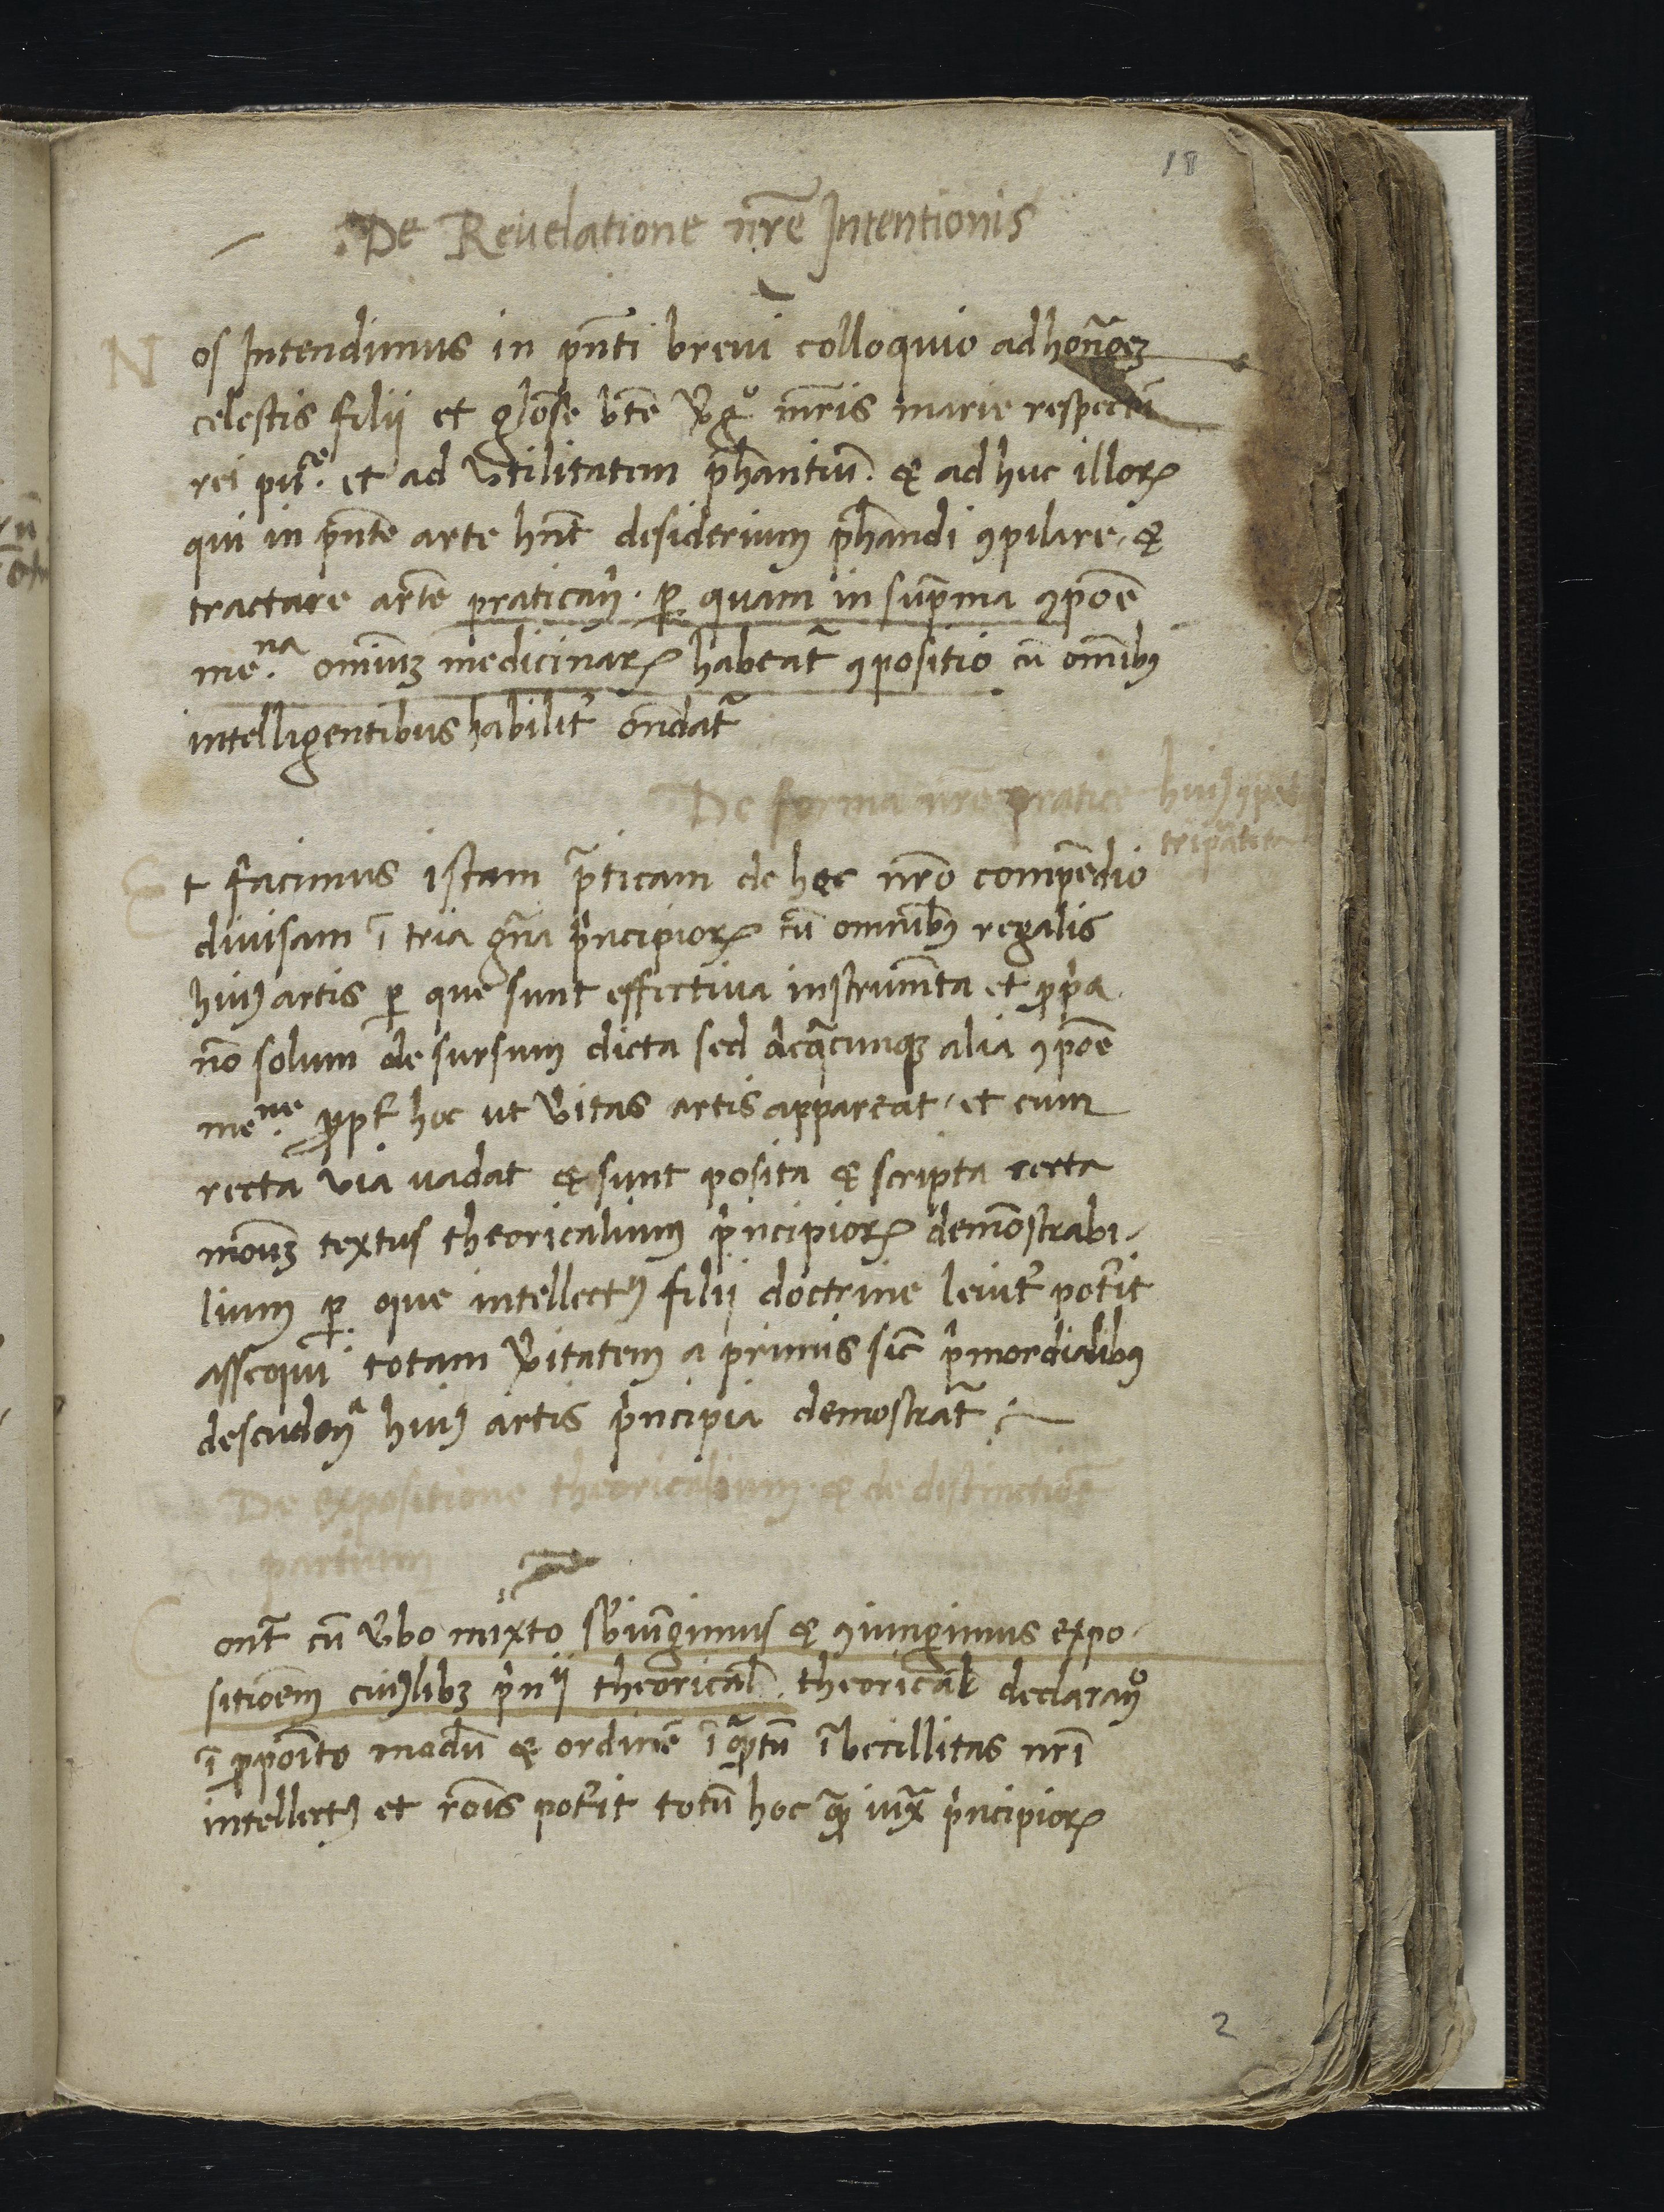 18
De Reuelatione nr̃e Intentionis
Nos Intendimus in pñti breui colloquio ad honõꝝ
celestis filii et glõse bt̃e v̄gͦ mr̃is marie respectu
rei et ad vtilitatem ꝓhantiũ. & ad huc illoꝝ
qui in pñte arte hñt desiderium ꝓhandi ꝯpilare &
tractare artẽ praticaꝫ. ꝑ quam in sup̃ma ꝯpoẽ
me.ⁿᵃ omĩuꝫ medicinaꝝ habeat᷑ ꝯpositio cũ om̃ibꝰ
intelligentibus habilit̕ oñdat᷑
De forma nr̃e pratice huiꝰ
tripãtita
Et facimus istam p̃ticam de hoc nr̃o compẽdio
diuisam ĩ tria gñа p̕ncipioꝝ cũ omnibꝰ regulis
huiꝰ artis ꝑ que sunt effectiua instrumẽta et ꝓp̕a
nõ solum desursum dicta sed alia ꝯpoẽ
me.ⁿᵉ ꝓpt̕ hoc ut v̕itas artis appareat et cum
recta via uadat & sunt posita & scripta recta
textus theoricalium p̕ncipioꝝ demõstrabi-
lium ꝑ que intellectꝰ filii doctrine leuit̕ pot̕it
assequi totam v̕itatem a primis sic̃ p̕mordialibꝰ
huiꝰ artis p̕ncipia demostrat᷑
De expositione theoricalium & de distinctiõe
partium
Cont᷑ cũ v̕bo mixto sb̕iũgimus & ꝯiungimus expo-
sitioẽm cuiꝰlibꝫ theoricał. theoricał
ĩ ꝓpoĩto modũ & ordinẽ ĩ q̃ntũ ĩbecillitas nr̃i
intellectꝰ et rõis pot̕it totũ hoc iux̃ p̕ncipioꝝ
2